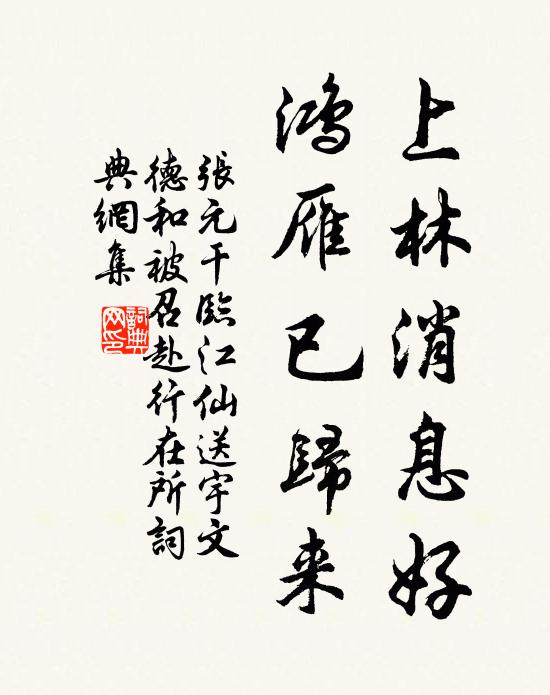 上林消息好
鴻雁已歸来
張元干臨江仙送宇文
德和被召赴行在所詞
典網集
詞典网印